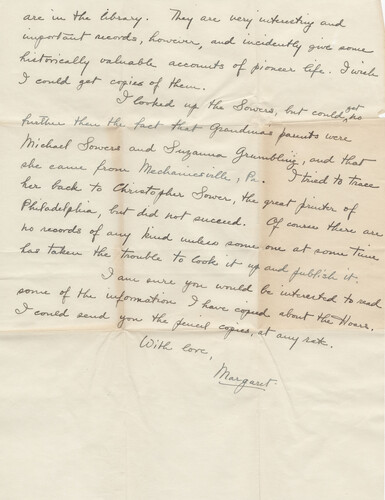 are in the library. They are very interesting and
important records, however, and incidently give some
historically valuable accounts of pioneer life. I wish
I could get copies of them.
I looked up the Sowers, but could get no
further then the fact that Grandma's parents were
Michael Sowers and Suzanna Grumbling, and that
she came from Mechanicsville, Pa. I tried to trace
her back to Christopher Sower, the great printer of
Philadelphia, but did not succeed. Of course there are
no records of any kind unless some one at some time
has taken the trouble to look it up and publish it.
I am sure you would be interested to read
some of the information I have copied about the Hoars.
I could send you the pencil copies, at any rate.
With love,
Margaret